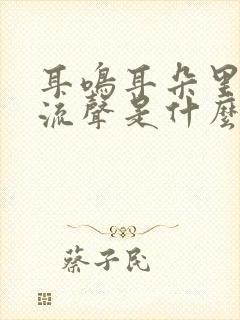 耳鳴耳朵里
流聲是什麼
蔡子民